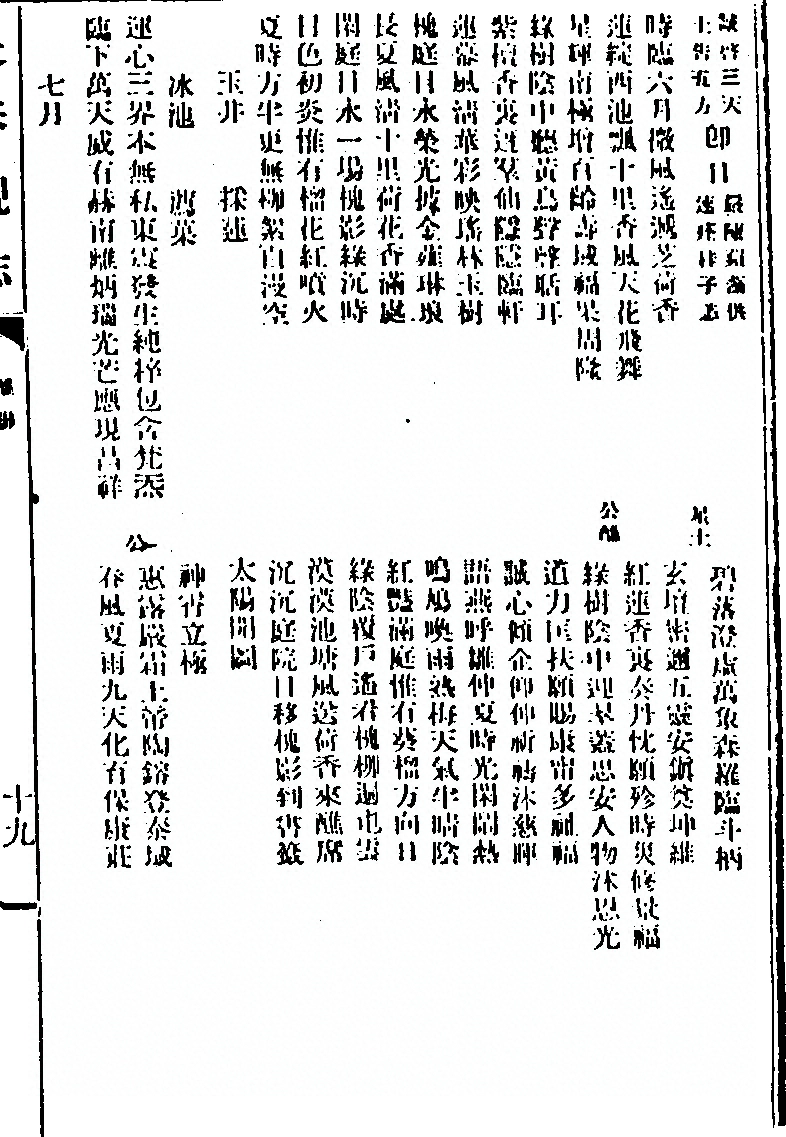 誠啓三天
上告五方
即日
碧落澄虛萬象森羅臨斗柄
星主
玄壇密邇五靈安鎮奠坤維
時臨六月微風遙遞芰荷香
紅蓮香裏奏丹忱願殄時災修景福
公醮
蓮綻西池飄十里香風天花飛舞
綠樹陰中迎羽蓋思安人物沐恩光
星輝南極增百齡壽域福果周隆
道力匡扶願賜康甯多祉福
綠樹陰中聽黃鳥聲聲聒耳
誠心傾企仰伸祈禱沐慈暉
紫檀香裏迓羣仙隱隱臨軒
語燕呼雛仲夏時光閑闊熱
蓮幕風清華彩映瑤林玉樹
鳴鳩喚雨熟梅天氣半晴陰
槐庭日永榮光接金薤琳瑯
紅豔滿庭惟有葵榴方向日
長夏風清十里荷花香滿處
綠陰覆戶遙看槐柳過屯雲
閑庭日永一場槐影綠沉時
漠漠池塘風送荷香來醮席
日色初炎惟有榴花紅噴火
沉沉庭院日移槐影到書籤
夏時方半更無柳絮白漫空
太陽開圖
玉井 採蓮
神霄立極
冰池 薦菓
惠露嚴霜上帝陶鎔登泰域
運心三界本無私東震發生純梓包含梵炁
公
春風夏雨九天化育保康莊
臨下萬天威有赫南離炳瑞光芒應現昌祥
七月
十九